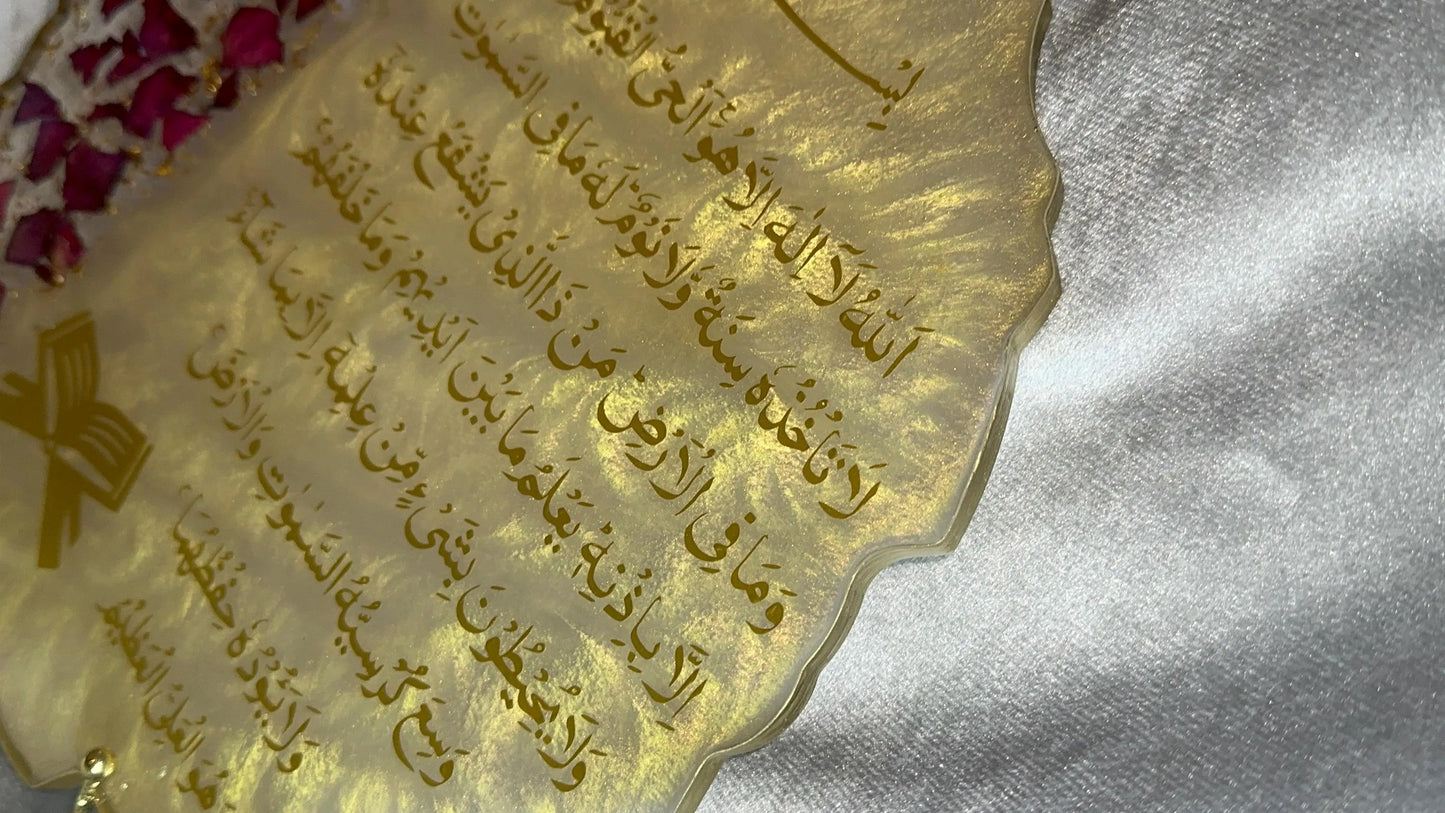 بِسْ
اَللّٰهُ لَاۤ اِلٰهَ اِلَّا هُوَۚ اَلْحَىُّ الْقَيُّوْمُ
لَا تَاْخُذُهٗ سِنَةٌ وَّلَا نَوْمٌؕ لَهٗ مَا فِى السَّمٰوٰتِ
وَمَا فِى الْاَرْضِؕ مَنْ ذَا الَّذِىْ يَشْفَعُ عِنْدَهٗۤ
اِلَّا بِاِذْنِهٖؕ يَعْلَمُ مَا بَيْنَ اَيْدِيْهِمْ وَمَا خَلْفَهُمْۚ
وَلَا يُحِيْطُوْنَ بِشَىْءٍ مِّنْ عِلْمِهٖۤ اِلَّا بِمَا شَآءَۚ
وَسِعَ كُرْسِيُّهُ السَّمٰوٰتِ وَالْاَرْضَۚ
وَلَا يَئُوْدُهٗ حِفْظُهُمَاۚ
هُوَ الْعَلِىُّ الْعَظِيْمُ